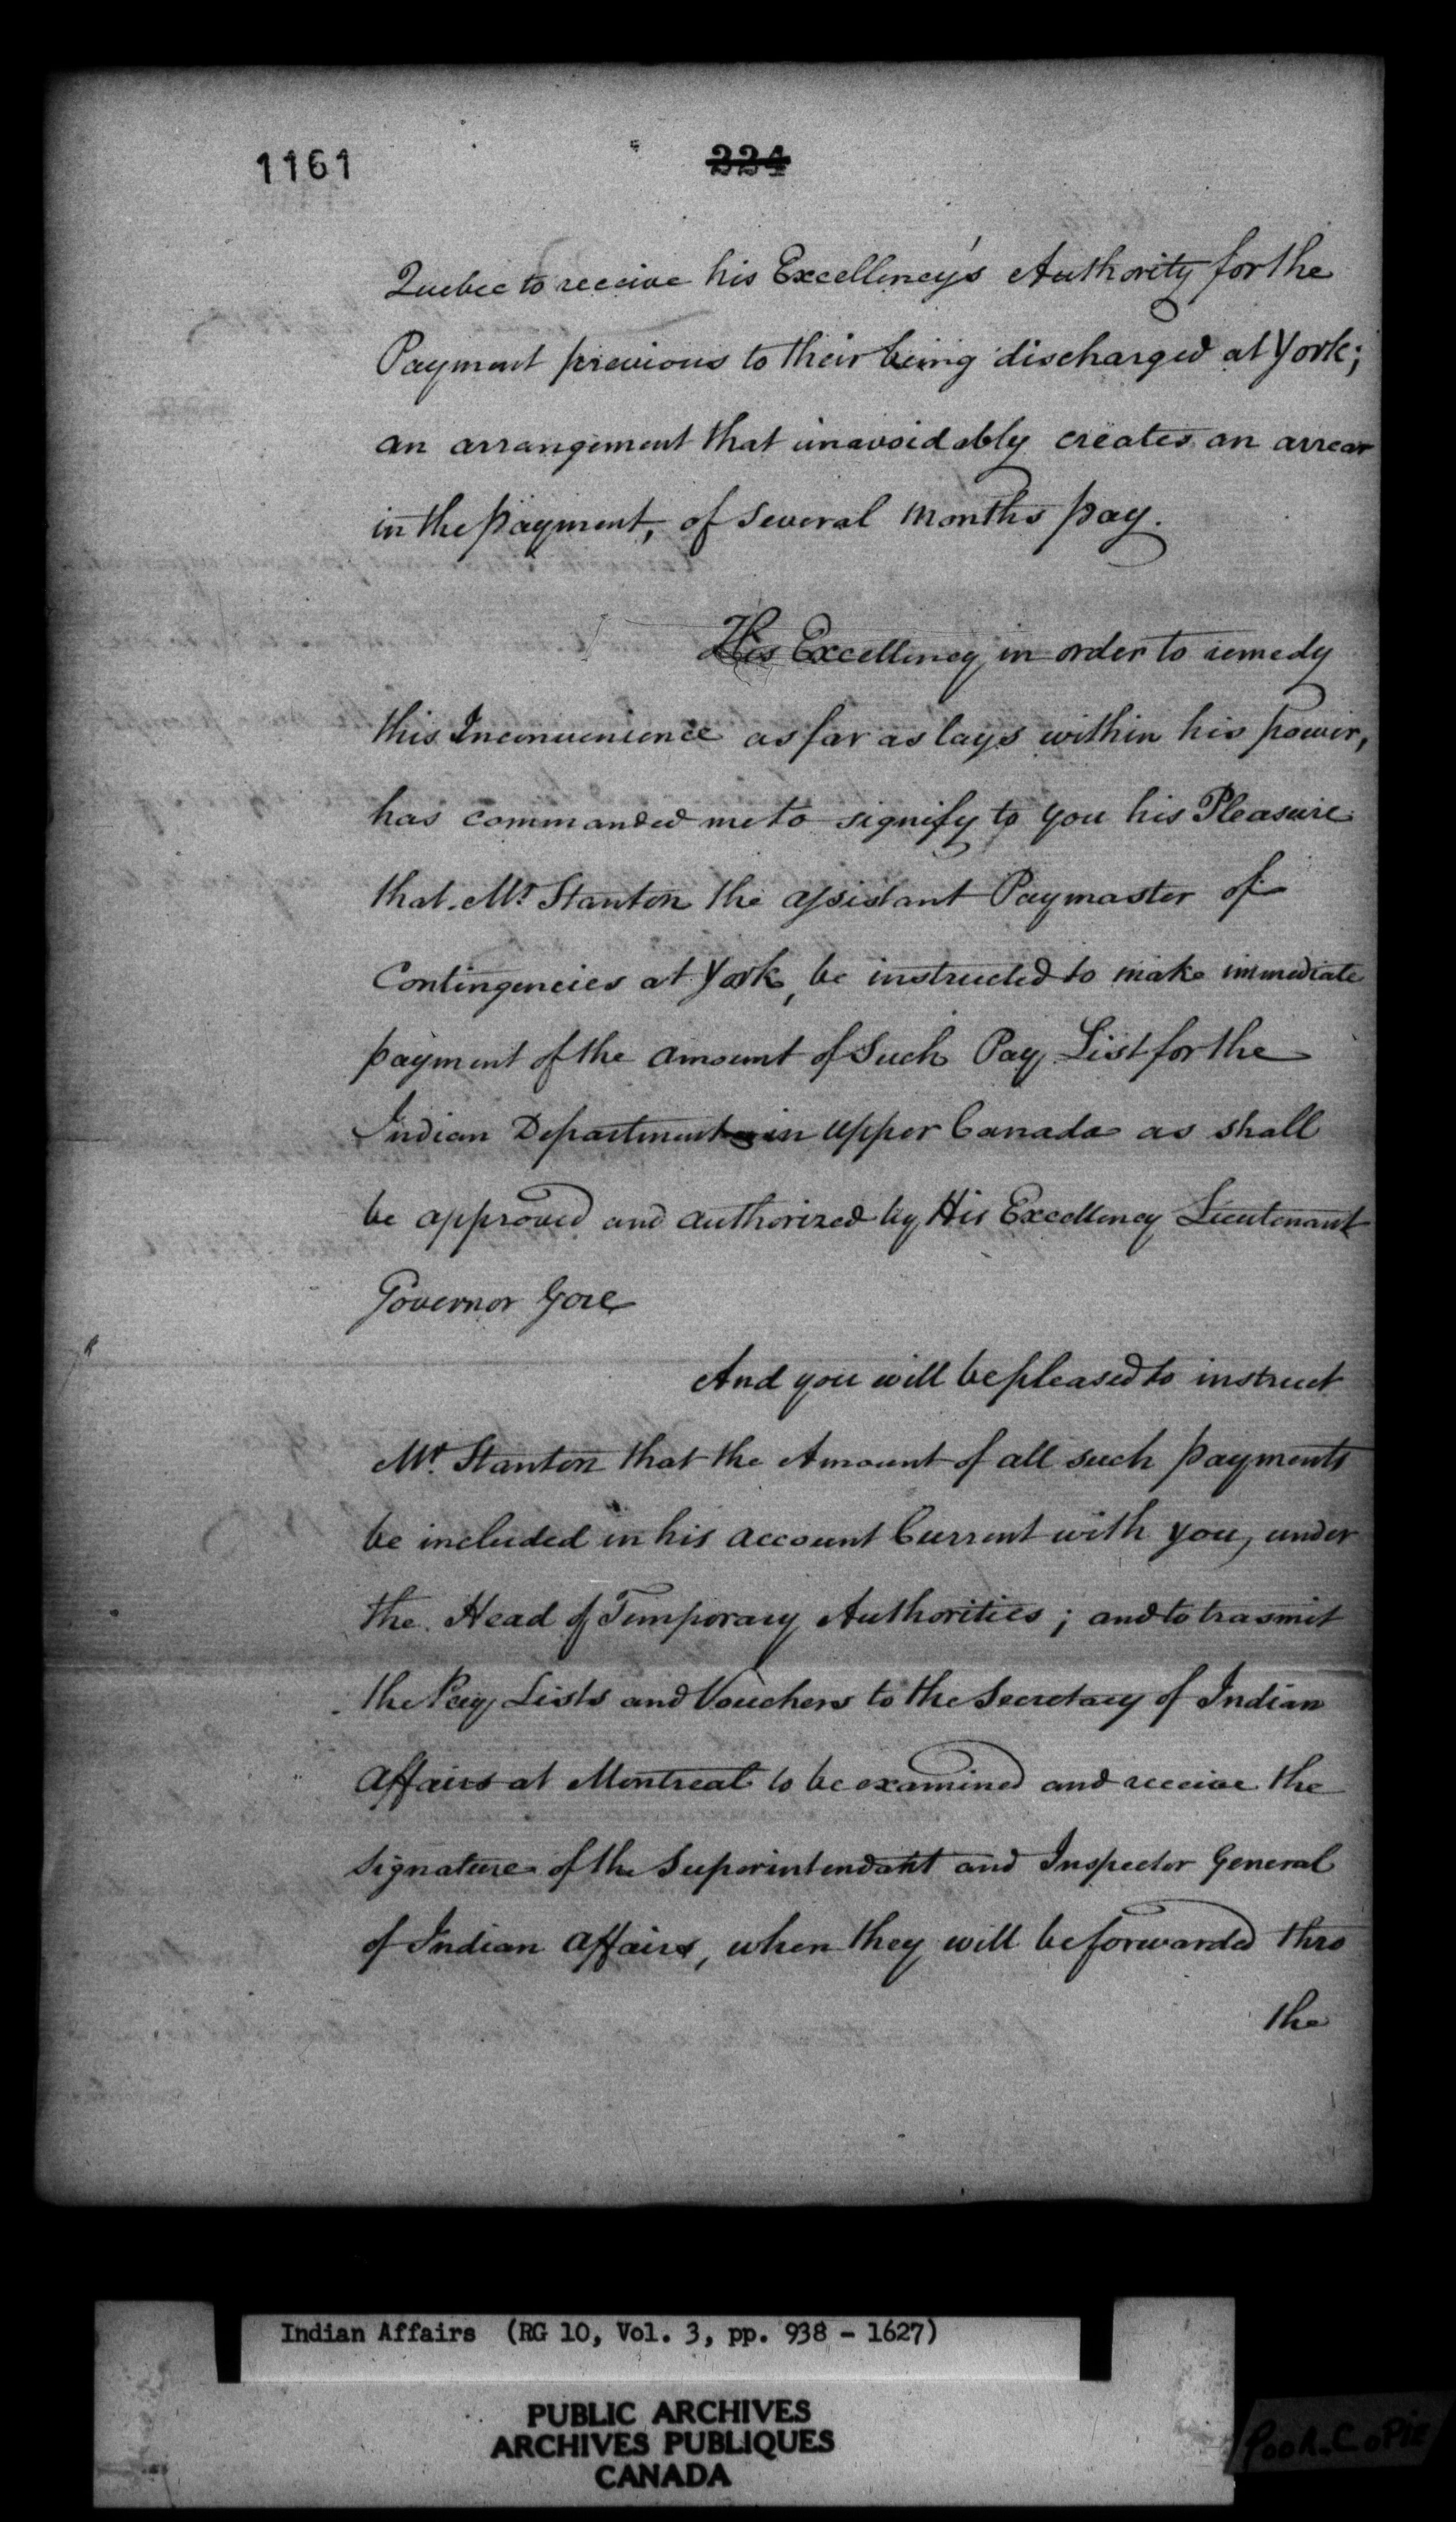 1161
224
Quebec to receive his Excellency's Authority for the
Payment previous to their being discharged at York;
an arrangement that unavoidably creates an arrear
in the payment, of several Months pay.
His Excellency in order to remedy
this Inconvenience as far as lays within his power,
has commanded me to signify to you his Pleasure
that Mr Stanton the assistant Paymaster of
Contingencies at York, be instructed to make immediate
payment of the amount of Such Pay List for the
Indian Department in Upper Canada as shall
be approved and authorized by His Excellency Lieutenant
Governor Gore
And you will be pleased to instruct
Mr. Stanton that the Amount of all such payments
be included in his account Current with you, under
the Head of Temporary Authorities; and to trasmit
the Pay Lists and Vouchers to the Secretary of Indian
Affairs at Montreal to be examined and receive the
signature of the Superintendant and Inspector General
of Indian Affairs, when they will be forwarded thro
the
Indian Affairs (RG 10, Vol. 3, pp. 938 - 1627)
PUBLIC ARCHIVES
ARCHIVES PUBLIQUES
CANADA
Poor.CoPie